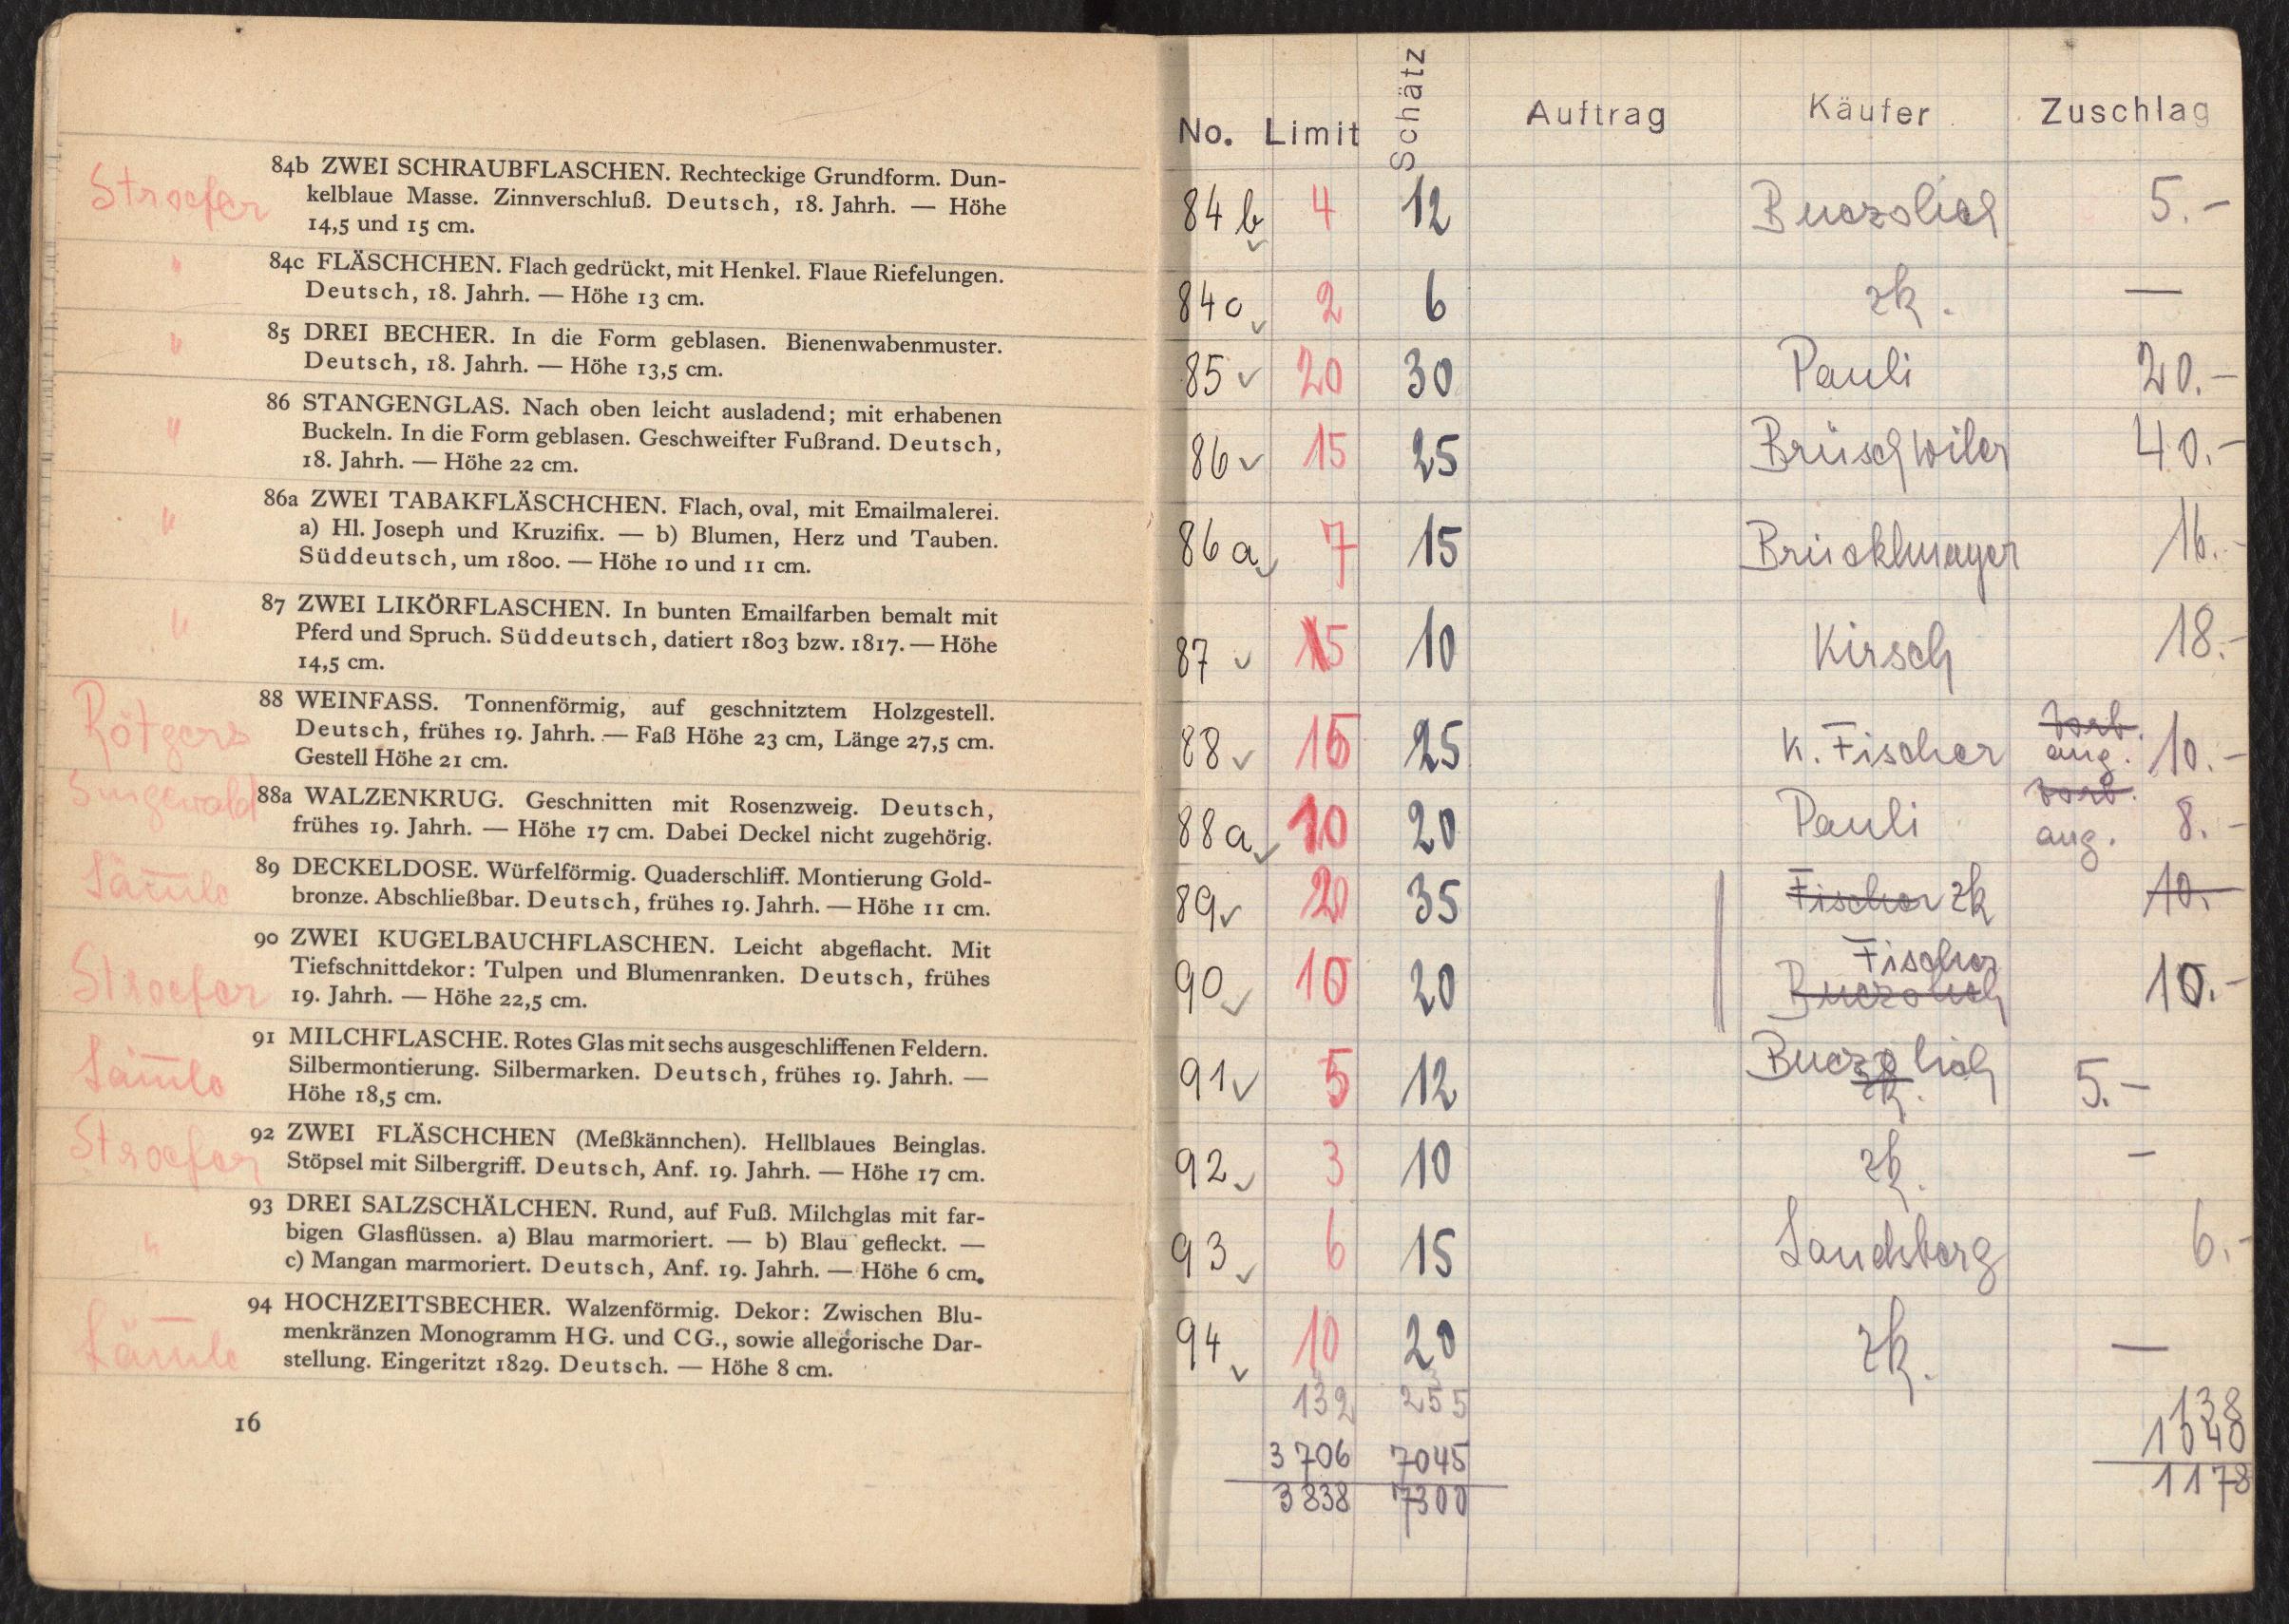 Stroefer
84b ZWEI SCHRAUBFLASCHEN. Rechteckige Grundform. Dun-
kelblaue Masse. Zinnverschluß. Deutsch, 18. Jahrh. — Höhe
14,5 und 15 cm.
" 84c FLÄSCHCHEN. Flach gedrückt, mit Henkel. Flaue Riefelungen.
Deutsch, 18. Jahrh. — Höhe 13 cm.
" 85 DREI BECHER. In die Form geblasen. Bienenwabenmuster.
Deutsch, 18. Jahrh. — Höhe 13,5 cm.
" 86 STANGENGLAS. Nach oben leicht ausladend; mit erhabenen
Buckeln. In die Form geblasen. Geschweifter Fußrand. Deutsch,
18. Jahrh. — Höhe 22 cm.
" 86a ZWEI TABAKFLÄSCHCHEN. Flach, oval, mit Emailmalerei.
a) Hl. Joseph und Kruzifix. — b) Blumen, Herz und Tauben.
Süddeutsch, um 1800. — Höhe 10 und 11 cm.
" 87 ZWEI LIKÖRFLASCHEN. In bunten Emailfarben bemalt mit
Pferd und Spruch. Süddeutsch, datiert 1803 bzw. 1817. — Höhe
14,5 cm.
Rötgers
88 WEINFASS. Tonnenförmig, auf geschnitztem Holzgestell.
Deutsch, frühes 19. Jahrh. — Faß Höhe 23 cm, Länge 27,5 cm.
Gestell Höhe 21 cm.
Singewald
88a WALZENKRUG. Geschnitten mit Rosenzweig. Deutsch,
frühes 19. Jahrh. — Höhe 17 cm. Dabei Deckel nicht zugehörig.
Läm̄le
89 DECKELDOSE. Würfelförmig. Quaderschliff. Montierung Gold-
bronze. Abschließbar. Deutsch, frühes 19. Jahrh. — Höhe 11 cm.
Stroefer
90 ZWEI KUGELBAUCHFLASCHEN. Leicht abgeflacht. Mit
Tiefschnittdekor: Tulpen und Blumenranken. Deutsch, frühes
19. Jahrh. — Höhe 22,5 cm.
Läm̄le
91 MILCHFLASCHE. Rotes Glas mit sechs ausgeschliffenen Feldern.
Silbermontierung. Silbermarken. Deutsch, frühes 19. Jahrh. —
Höhe 18,5 cm.
Stroefer
92 ZWEI FLÄSCHCHEN (Meßkännchen). Hellblaues Beinglas.
Stöpsel mit Silbergriff. Deutsch, Anf. 19. Jahrh. — Höhe 17 cm.
" 93 DREI SALZSCHÄLCHEN. Rund, auf Fuß. Milchglas mit far-
bigen Glasflüssen. a) Blau marmoriert. — b) Blau gefleckt. —
c) Mangan marmoriert. Deutsch, Anf. 19. Jahrh. — Höhe 6 cm.
Läm̄le
94 HOCHZEITSBECHER. Walzenförmig. Dekor: Zwischen Blu-
menkränzen Monogramm HG. und CG., sowie allegorische Dar-
stellung. Eingeritzt 1829. Deutsch. — Höhe 8 cm.
16
No. Limit Schätz Auftrag Käufer Zuschlag
84b 4 12 Buczolich 5.-
84c 2 6 zk. —
85 20 30 Pauli 20.-
86 15 25 Brüschwiler 40.-
86a 7 15 Brücklmayer 16.-
87 15 10 Kirsch 18.-
88 15 25 K. Fischer ang. 10.-
88a 10 20 Pauli ang. 8.-
89 20 35 Fischer zk 10.-
Fischer
90 10 20 Buczolich 10.-
91 5 12 Buczolich zk. 5.-
92 3 10 zk. -
93 6 15 Landsberg 6.-
94 10 20 zk. —
132 255 138
3706 7045 1040
3838 7300 1178